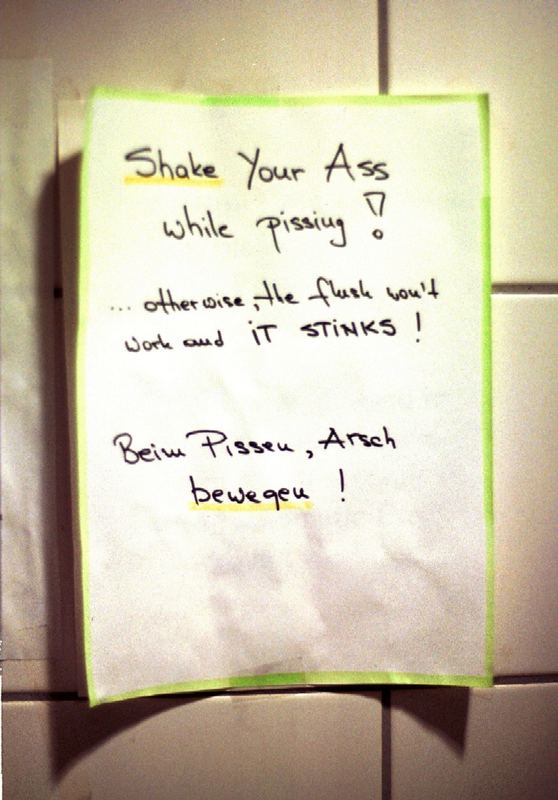 Shake Your Ass
while pissing !
... otherwise, the flush won't
work and iT STiNKS !
Beim Pissen, Arsch
bewegen !